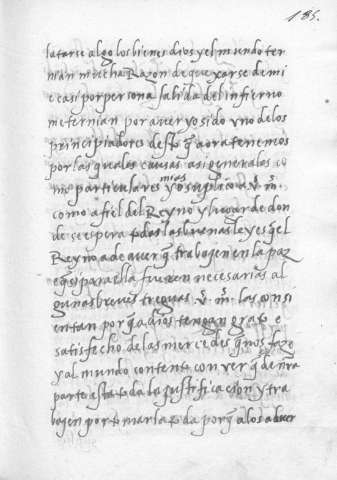 185.
latarse algo los bienes dios y el mundo ter
nian mucha Razon de quexarse de mi
e casi por persona salida del infierno
me ternian por aver yo sido vno delos
principiadores desto q̃ aora tenemos
por las quales causas asi generales co
mo particulares mias yo suplico a v. m.
como a fiel del Reyno y lugar de don
de se espera todas las buenas leyes q̃ el
Reyno a de aver q̃ trabajen en la paz
e q̃ si para ella fueren necesarias al
gunas breves treguas v. m. las consi
entan por q̃ a dios tengan grato e
satisfecho de las mercedes q̃ nos faze
y al mundo contento con ver q̃ de nr̃a
parte esta toda la justificacion y tra
bajen por tomarla toda por q̃ a los aduer